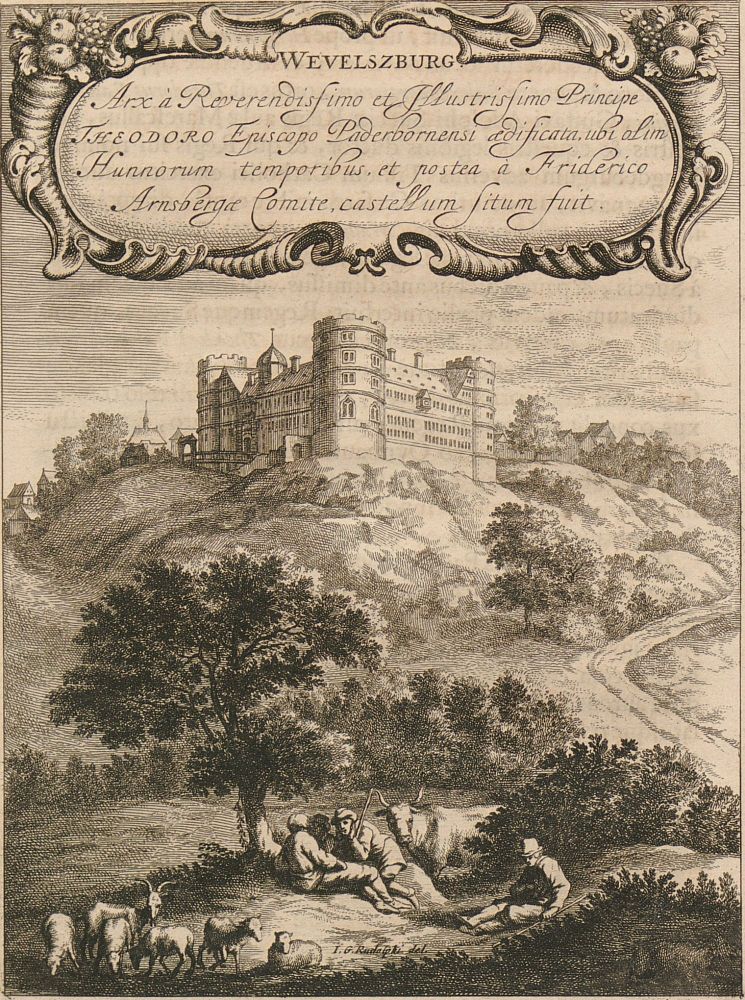 WEVELSZBURG.
Arx à Reverendissimo et Illustrissimo Principe
THEODORO Episcopo Paderbornensi ædificata, ubi olim
Hunnorum temporibus, et postea à Friderico
Arnsbergæ Comite, castellum situm fuit.
I.G. Rudolphi del.